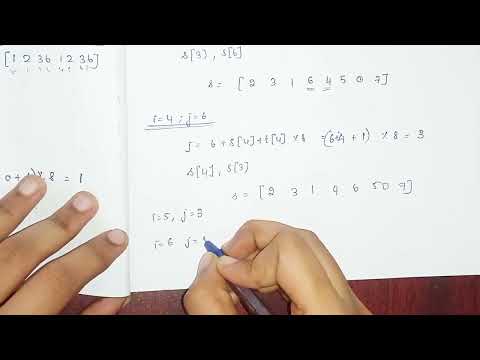 [1 2 3 6 1 2 3 6]
s[3] , s[6]
s = [ 2 3 1 6 4 5 0 7 ]
i=4 ; j=6
j = 6 + s[4] + t[4] % 8 = (6+4 + 1) % 8 = 3
% 8 = 1
s[4] , s[3]
s = [ 2 3 1 4 6 5 0 7 ]
i=5 , j=3
i=6 j=